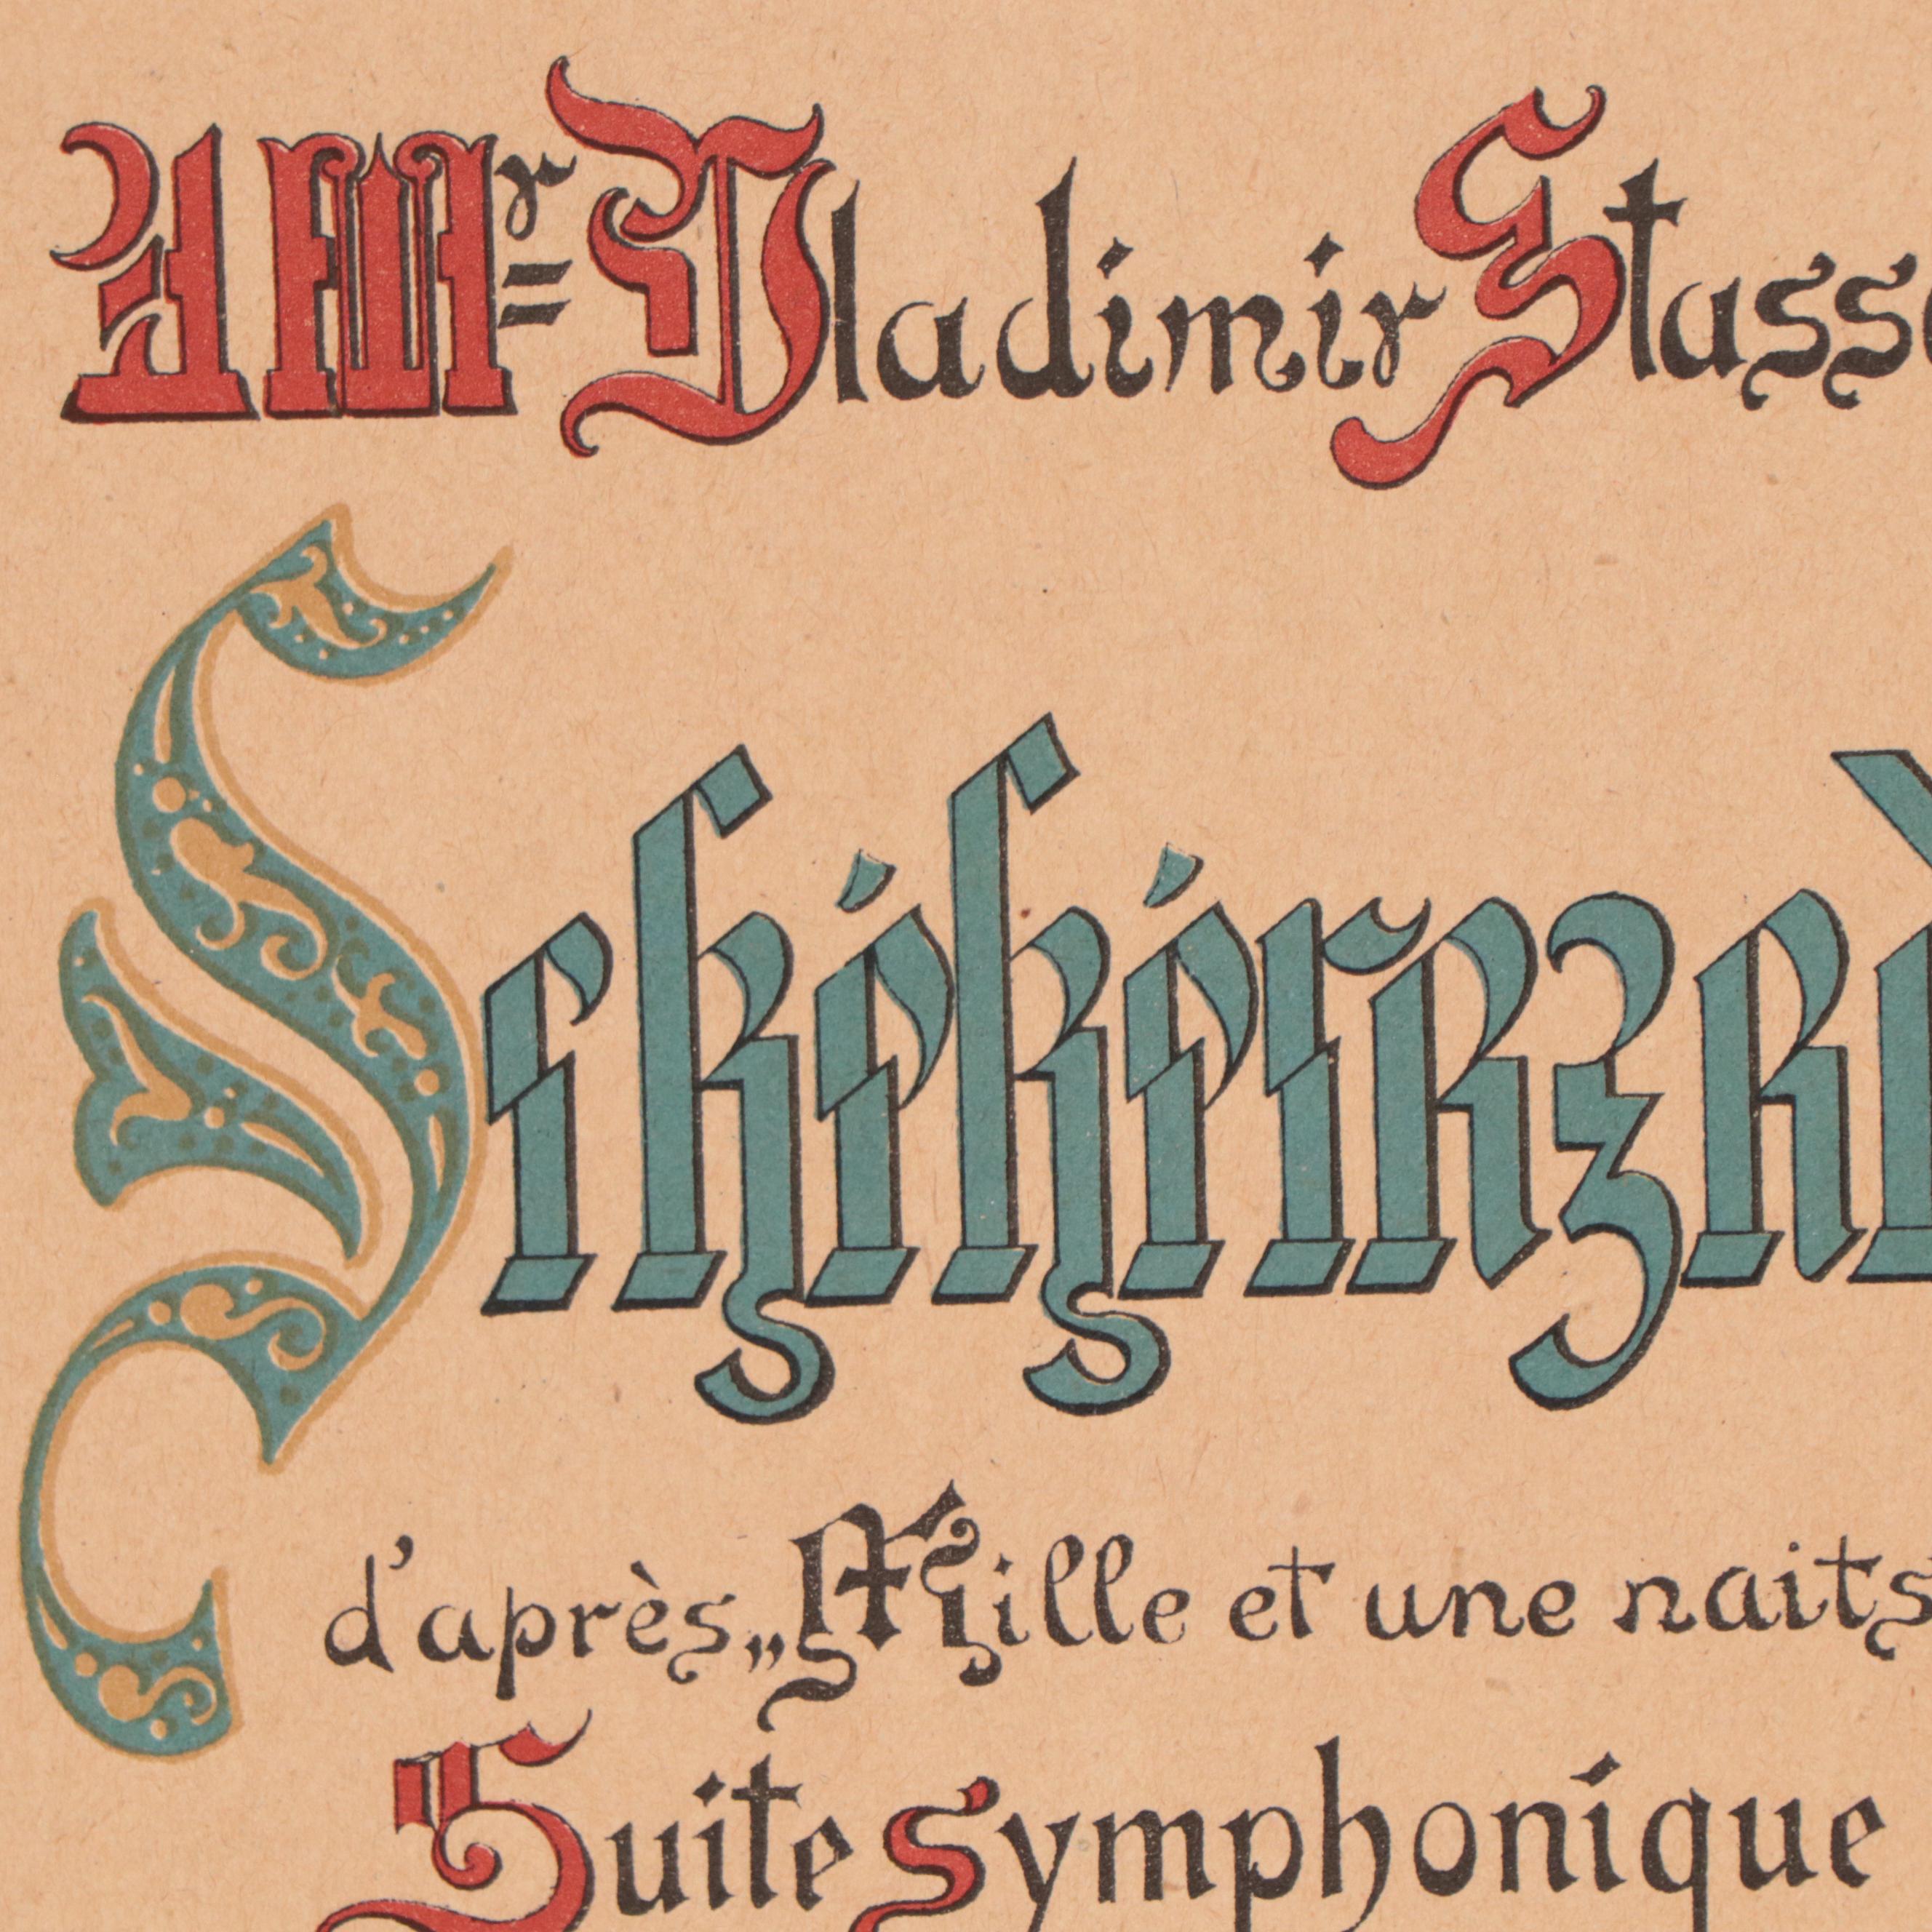 A Mr Vladimir Stass
Schéhérazad
d'après „Mille et une naits
Suite symphonique